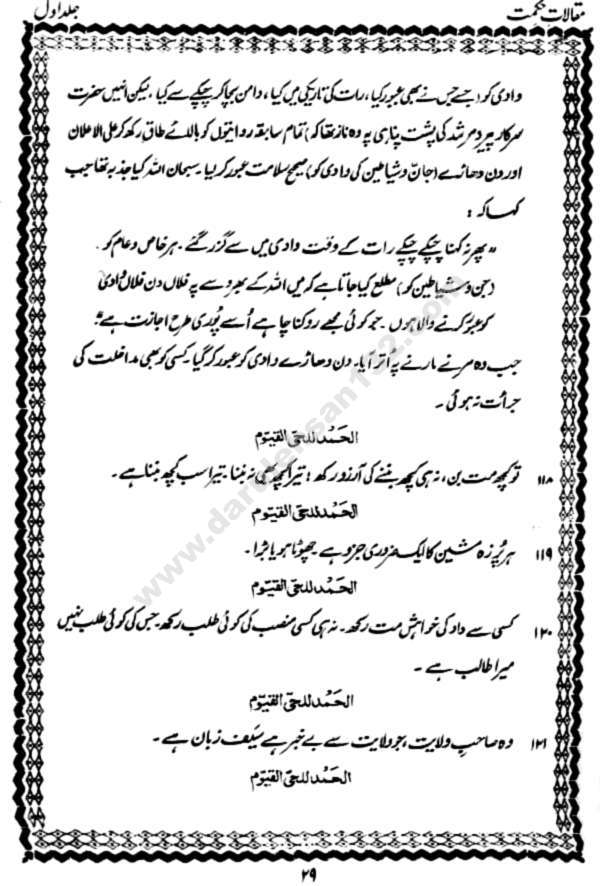 مقالاتِ حکمت
جلد اول
وادی کو (جسے جس نے بھی عبور کیا، رات کی تاریکی میں کیا، دامن بچا کر چپکے سے کیا۔ لیکن انہیں حضرت
سرکار پیر و مرشد کی پشت پناہی پہ وہ ناز تھا کہ) تمام سابقہ روایتوں کو بالائے طاق رکھ کر علی الاعلان
اور دن دھاڑے (جانّ و شیاطین کی وادی کو) صحیح سلامت عبور کر لیا۔ سبحان اللہ کیا جذبہ تھا جب
کہا کہ :
"پھر نہ کہنا چپکے چپکے رات کے وقت وادی میں سے گزر گئے۔ ہر خاص و عام کو
(جن و شیاطین کو) مطلع کیا جاتا ہے کہ میں اللہ کے بھروسے پہ فلاں دن فلاں وادی
کو عبور کرنے والا ہوں۔ جو کوئی مجھے روکنا چاہے اُسے پُوری طرح اجازت ہے"
جب وہ مرنے مارنے پہ اتر آیا۔ دن دھاڑے وادی کو عبور کر گیا۔ کسی کو بھی مداخلت کی
جرأت نہ ہوئی۔
الحَمْدُ للحیّ القیّوم
۱۱۸ تو کچھ مت بن، نہ ہی کچھ بننے کی آرزو رکھ؛ تیرا کچھ بھی نہ بننا۔ تیرا سب کچھ بننا ہے۔
الحَمْدُ للحیّ القیّوم
۱۱۹ ہر پُرزہ مشین کا ایک ضروری جزو ہے چھوٹا ہو یا بڑا۔
الحَمْدُ للحیّ القیّوم
۱۲۰ کسی سے داد کی خواہش مت رکھ۔ نہ ہی کسی منصب کی کوئی طلب رکھ۔ جس کی کوئی طلب نہیں
میرا طالب ہے۔
الحَمْدُ للحیّ القیّوم
۱۲۱ وہ صاحبِ ولایت، جو ولایت سے بے خبر ہے سَیف زبان ہے۔
الحَمْدُ للحیّ القیّوم
۲۹